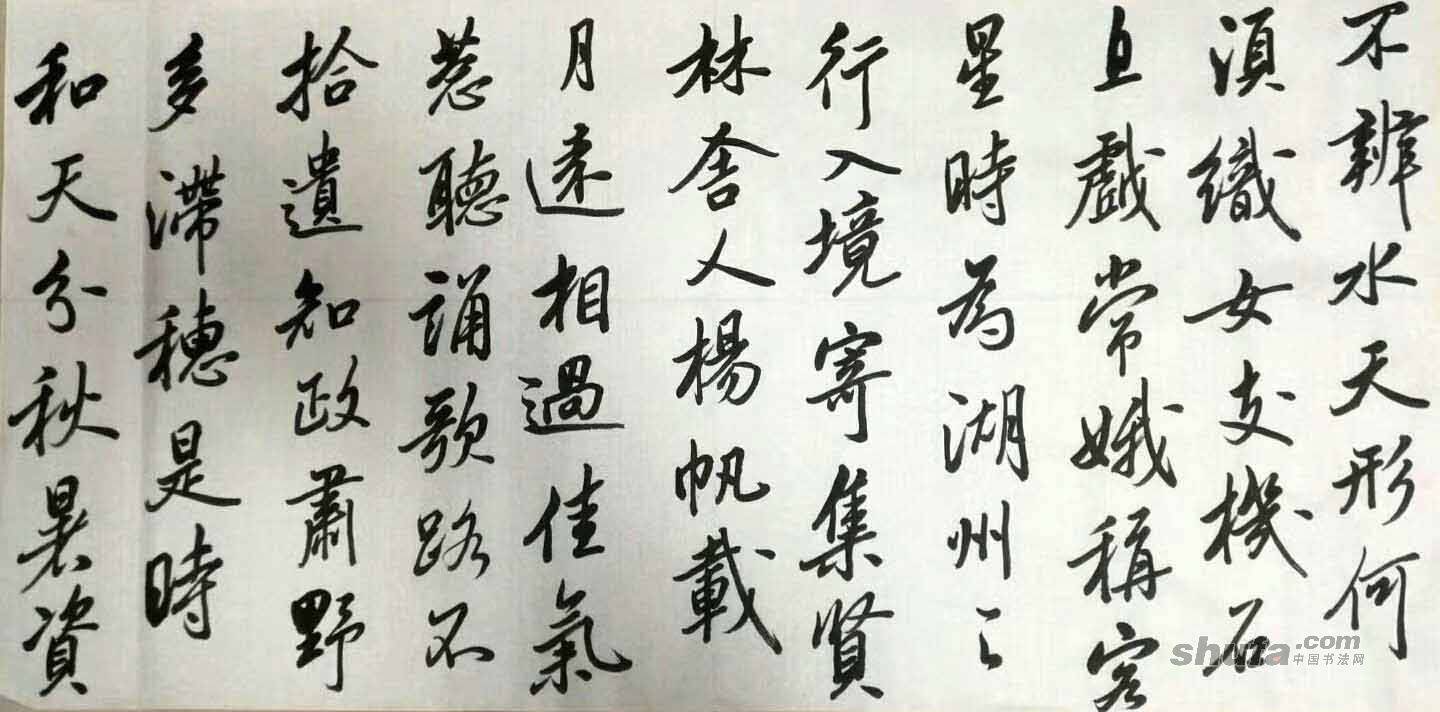 不辨水天形何
須織女支機石
且戲常娥稱客
星時為湖州之
行入境寄集賢
林舍人楊帆載
月遠相過佳氣
葱聽誦歌路不
拾遺知政肅野
多滯穗是時
和天分秋暑資
shufa.com
中国书法网